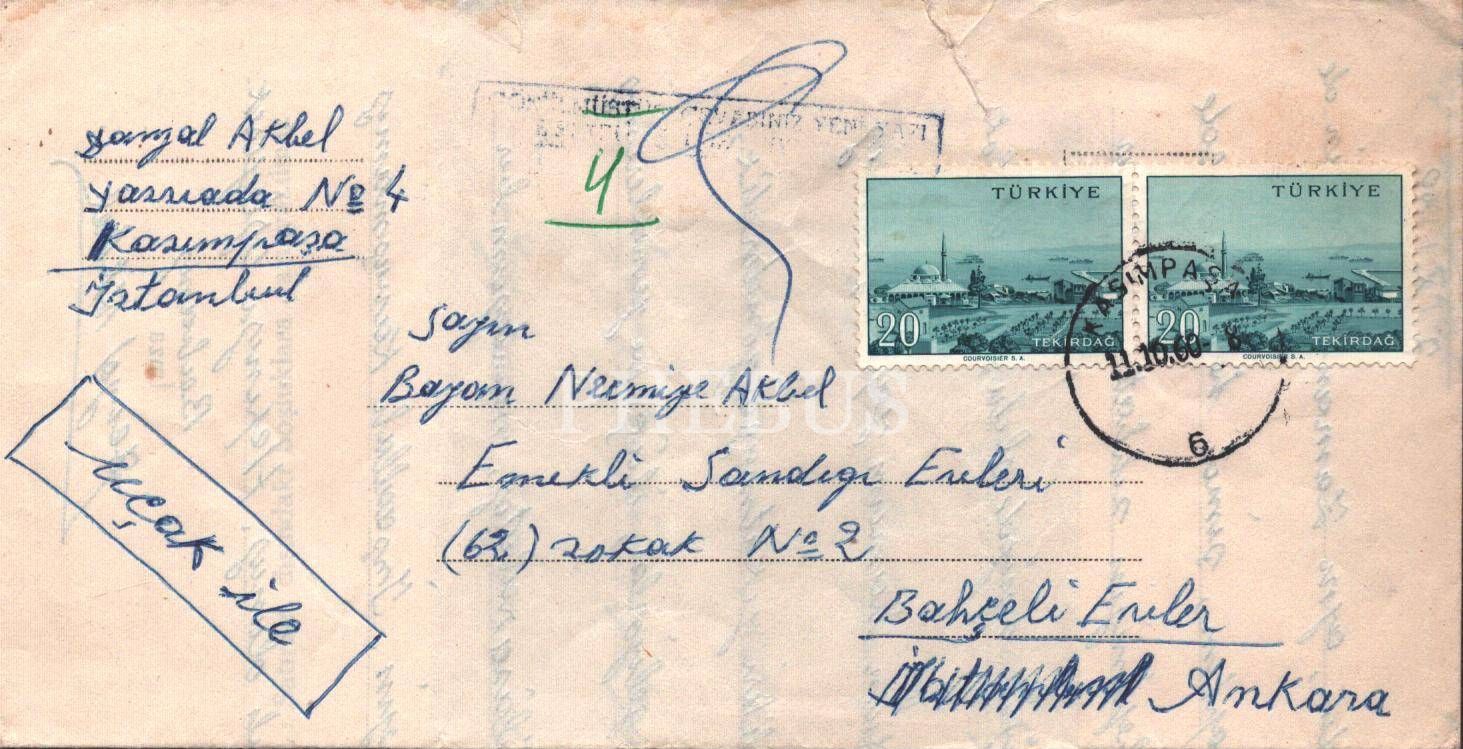 Şamgal Akbel
Yassıada № 4
Kasımpaşa
İstanbul
CEVABINIZ YENİ YAZI
4
TÜRKİYE
20
TEKİRDAĞ
COURVOISIER S. A.
TÜRKİYE
20
TEKİRDAĞ
COURVOISIER S. A.
KASIMPAŞA
11.10.60
6
Sayın
Bayan Necmiye Akbel
Emekli Sandıgı Evleri
(62) sokak № 2
Bahçeli Evler
Ankara
uçak ile
PHEBUS